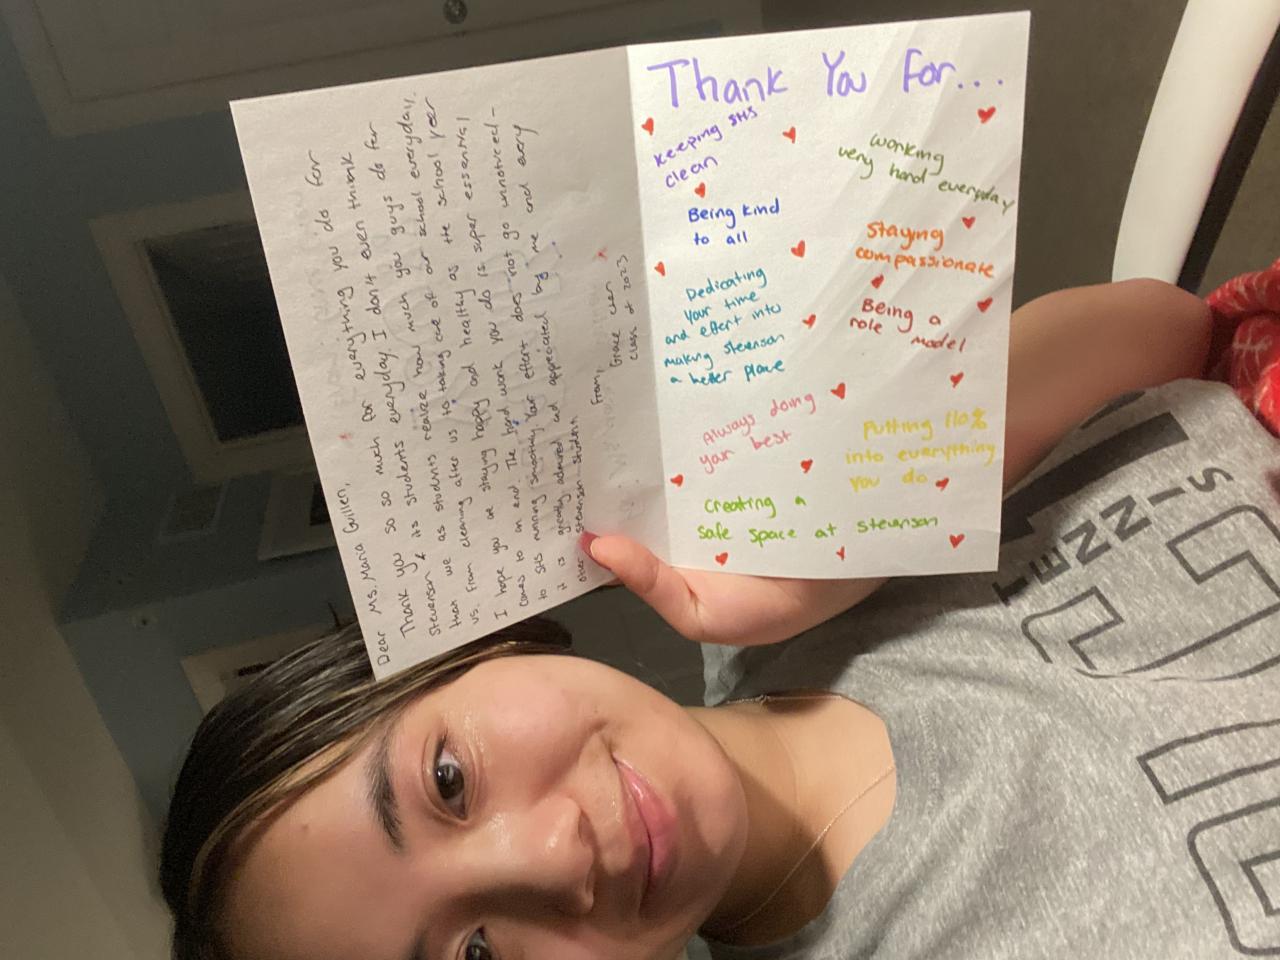 Dear Ms. Maria Guillen,
Thank you so so much for everything you do for
Stevenson & its students everyday. I don't even think
that we as students realize how much you guys do for
us. From cleaning after us to taking care of our school everyday.
I hope you are staying happy and healthy as the school year
comes to an end. The hard work you do is super essential
to SHS running smoothly. Your effort does not go unnoticed -
it is greatly admired and appreciated by me and every
other stevenson student
From,
Grace Chen
class of 2023
Thank You For...
keeping SHS
clean
working
very hard everyday
Being kind
to all
Staying
compassionate
Dedicating
your time
and effort into
making Stevenson
a better place
Being a
role model
Always doing
your best
Putting 110%
into everything
you do
Creating a
safe space at Stevenson
TENNIS